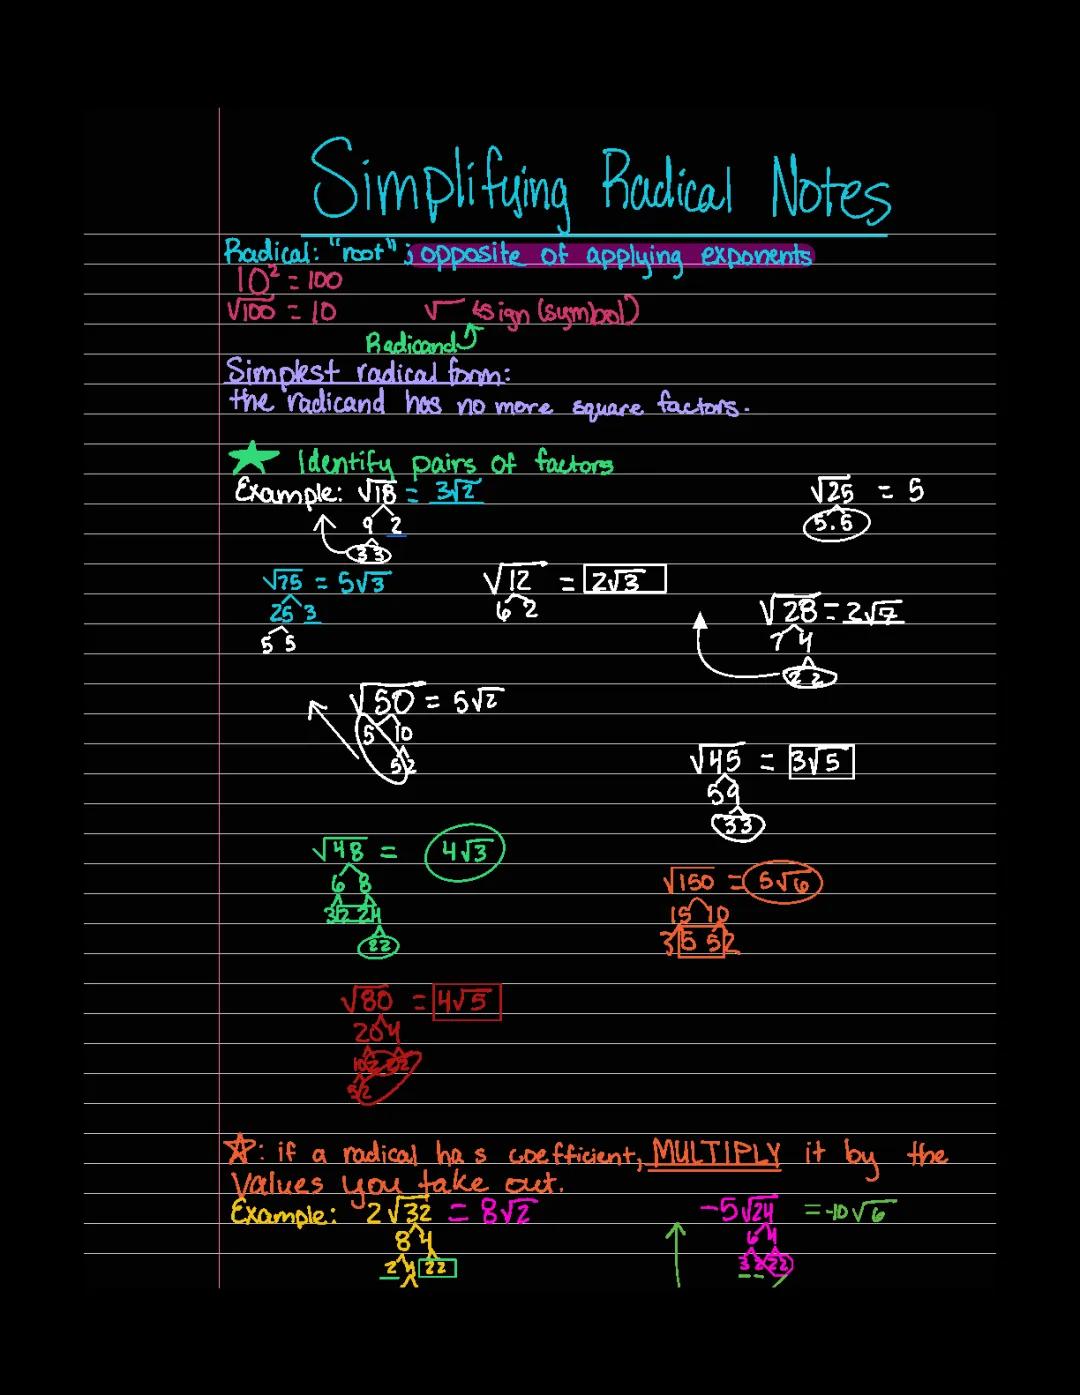 Simplifying Radical Notes
Radical: "root"; opposite of applying exponents
10² = 100
√100 = 10 √ sign (symbol)
Radicand
Simplest radical form:
the radicand has no more square factors.
★ Identify pairs of factors
Example: √18 = 3√2 √25 = 5
9 2 5.5
3 3
√75 = 5√3 √12 = 2√3
25 3 6 2 √28 = 2√7
5 5 7 4
2 2
√50 = 5√2
5 10
5 2 √45 = 3√5
5 9
3 3
√48 = 4√3
6 8 √150 = 5√6
3 2 2 4 15 10
2 2 3 5 5 2
√80 = 4√5
20 4
10 2 2 2
5 2
☆: if a radical has coefficient, MULTIPLY it by the
values you take out.
Example: 2√32 = 8√2 -5√24 = -10√6
8 4 6 4
2 4 2 2 3 2 2 2